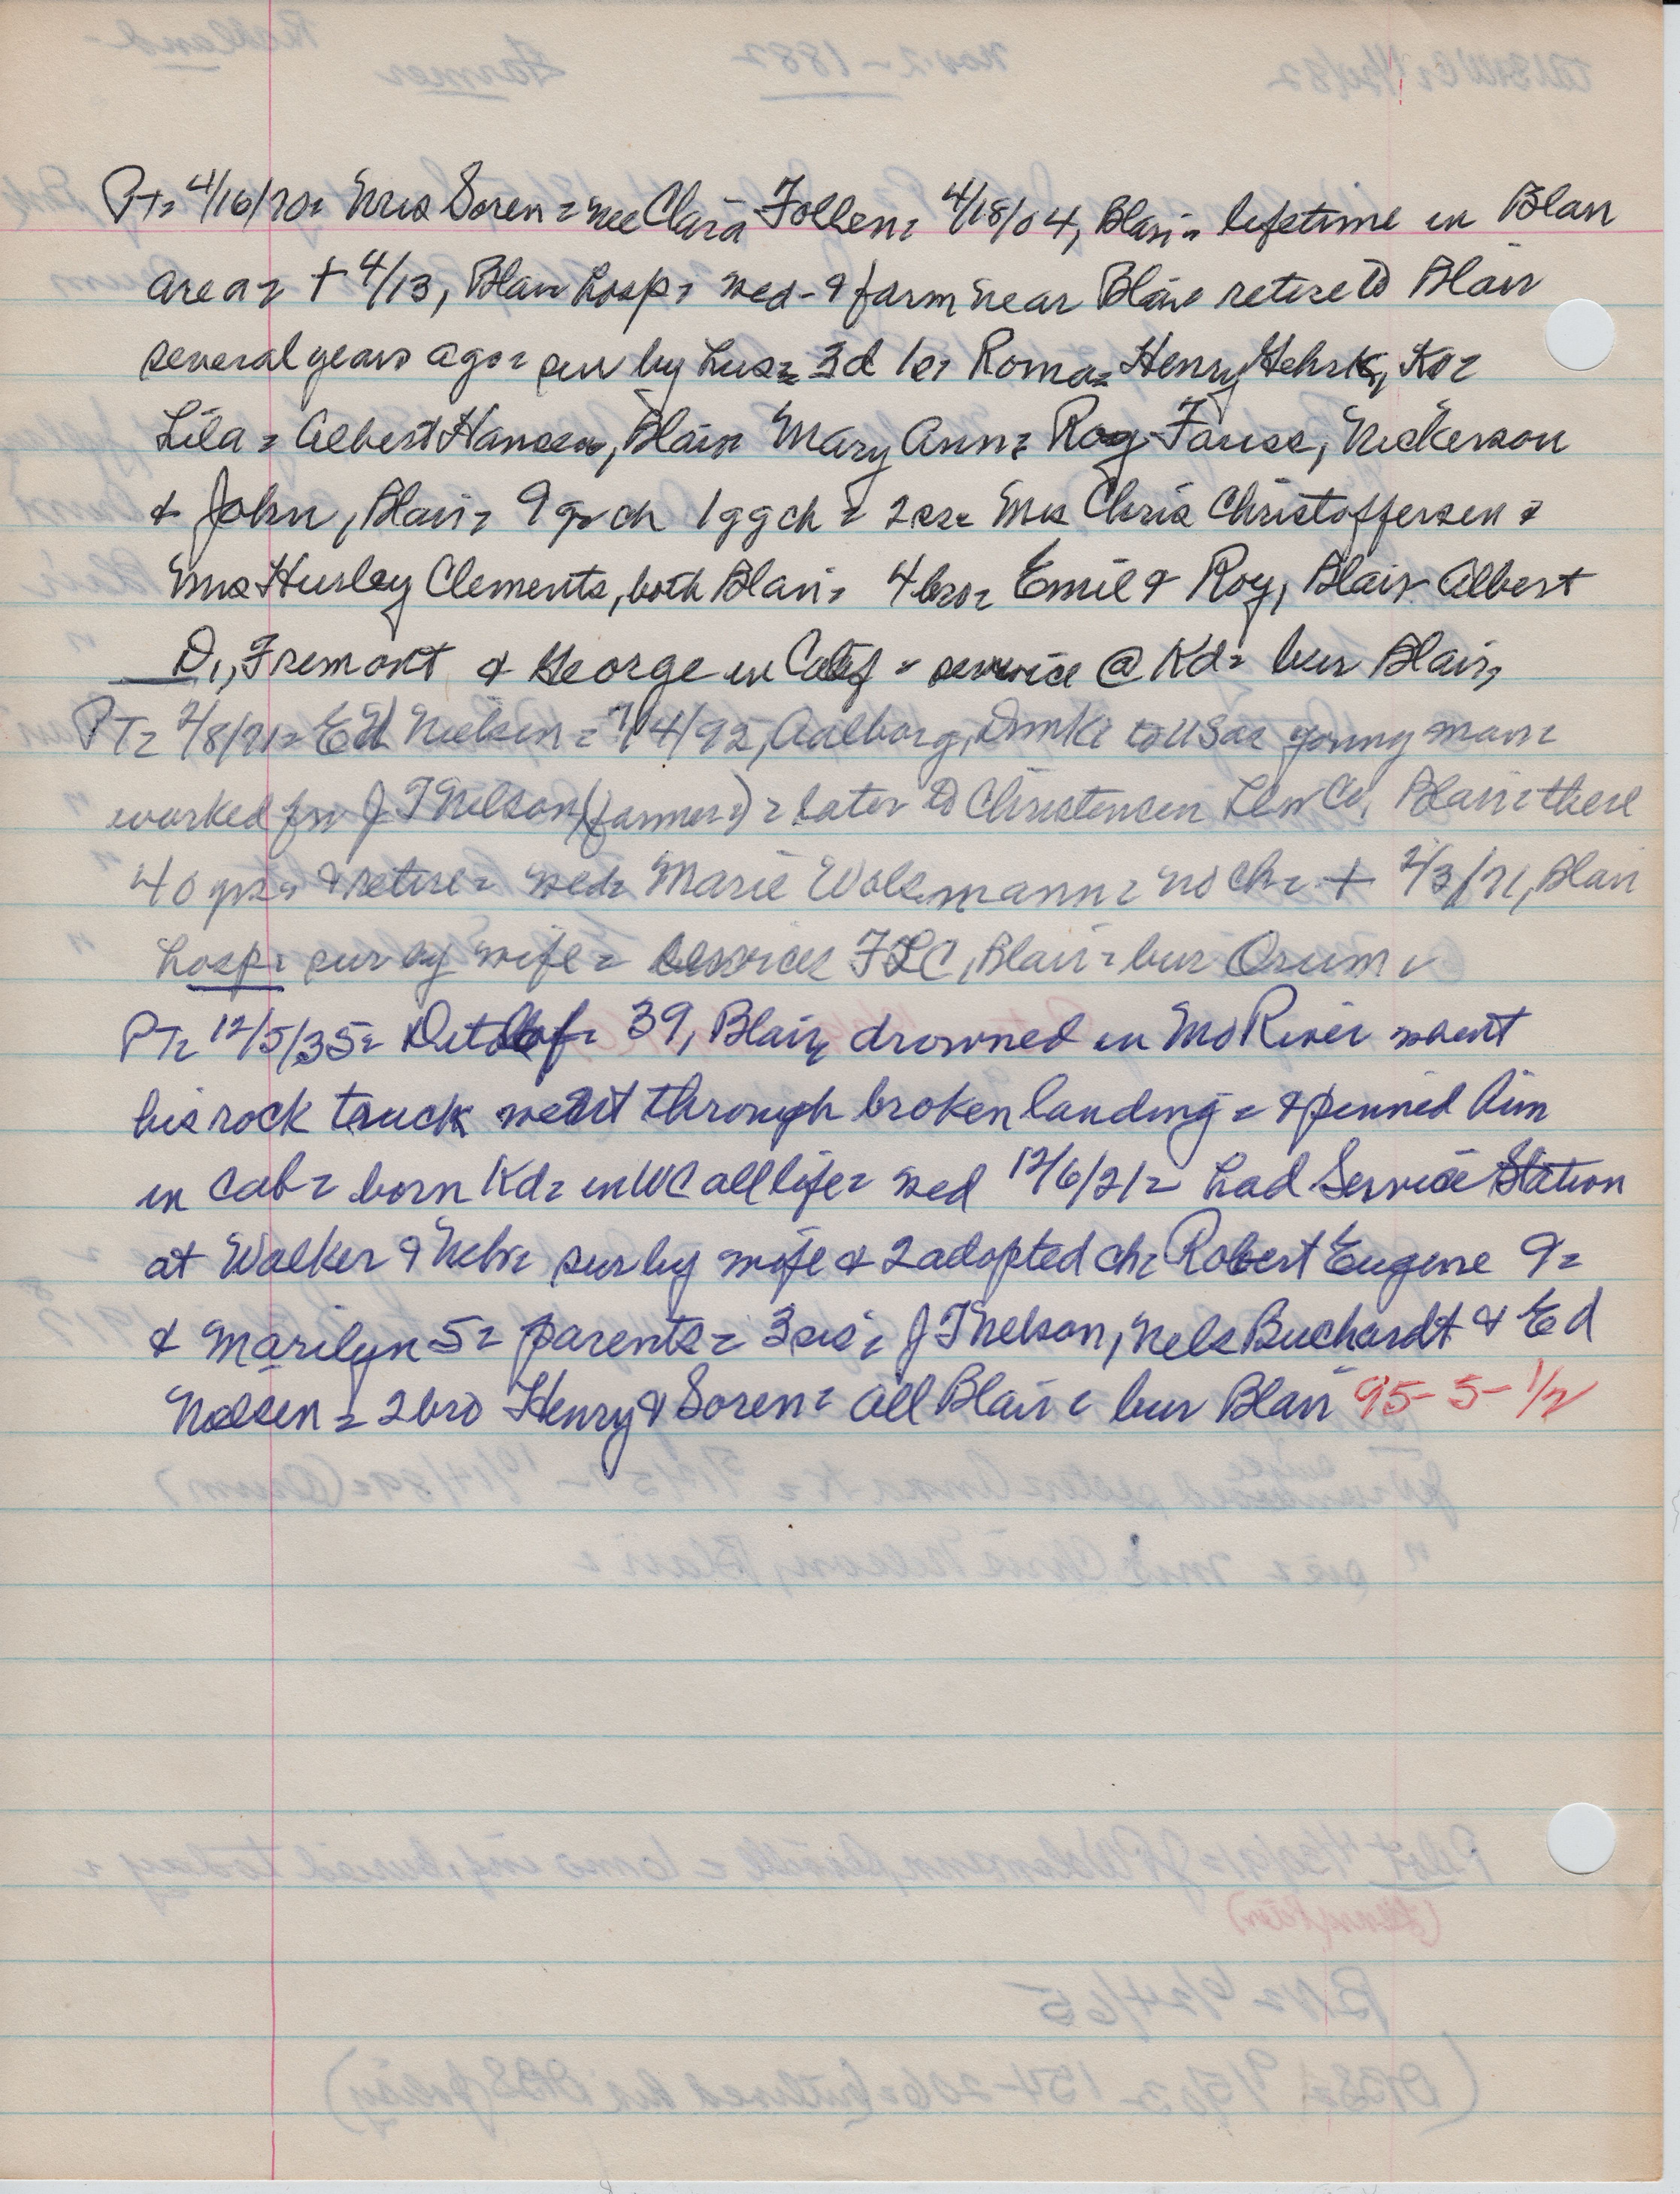 PT= 4/16/70= Mrs Soren= nee Clara Follen= 4/18/04, Blair= lifetime in Blair
area= + 4/13, Blair hosp= wed- & farm near Blair retire to Blair
several years ago= sur by hus= 3d 1s= Roma= Henry Gehrk, Ko=
Lila= Albert Hansen, Blair= Mary Ann= Roy Fauss, Nickerson
& John, Blair= 9 gr ch 1 ggch= 2 ss= Mrs Chris Christoffersen &
Mrs Hurley Clements, both Blair= 4 bro= Emil & Roy, Blair Albert
D., Fremont & George in Calif= service @ Kd= bur Blair,
PT= 2/8/71= Ed Nielsen= 7/4/92, Aalborg, Dmk= to USa= young man=
worked for J T Nelson (farmer)= later to Christensen Lbr Co, Blair= there
40 yrs= & retire= wed= Marie Wolsmann= no ch= + 2/3/71, Blair
hosp= sur by wife= services FLC, Blair= bur Orum=
PT= 12/5/35= Detlof= 39, Blair, drowned in Mo River when
his rock truck went through broken landing= & pinned him
in cab= born Kd= in WC all life= wed 12/6/21= had Service Station
at Walker & Neb= sur by wife & 2 adopted ch= Robert Eugene 9=
& Marilyn 5= parents= 3 sis= J T Nelson, Nels Buchardt & Ed
Nelsen= 2 bro Henry & Soren= all Blair= bur Blair 95-5-1/2